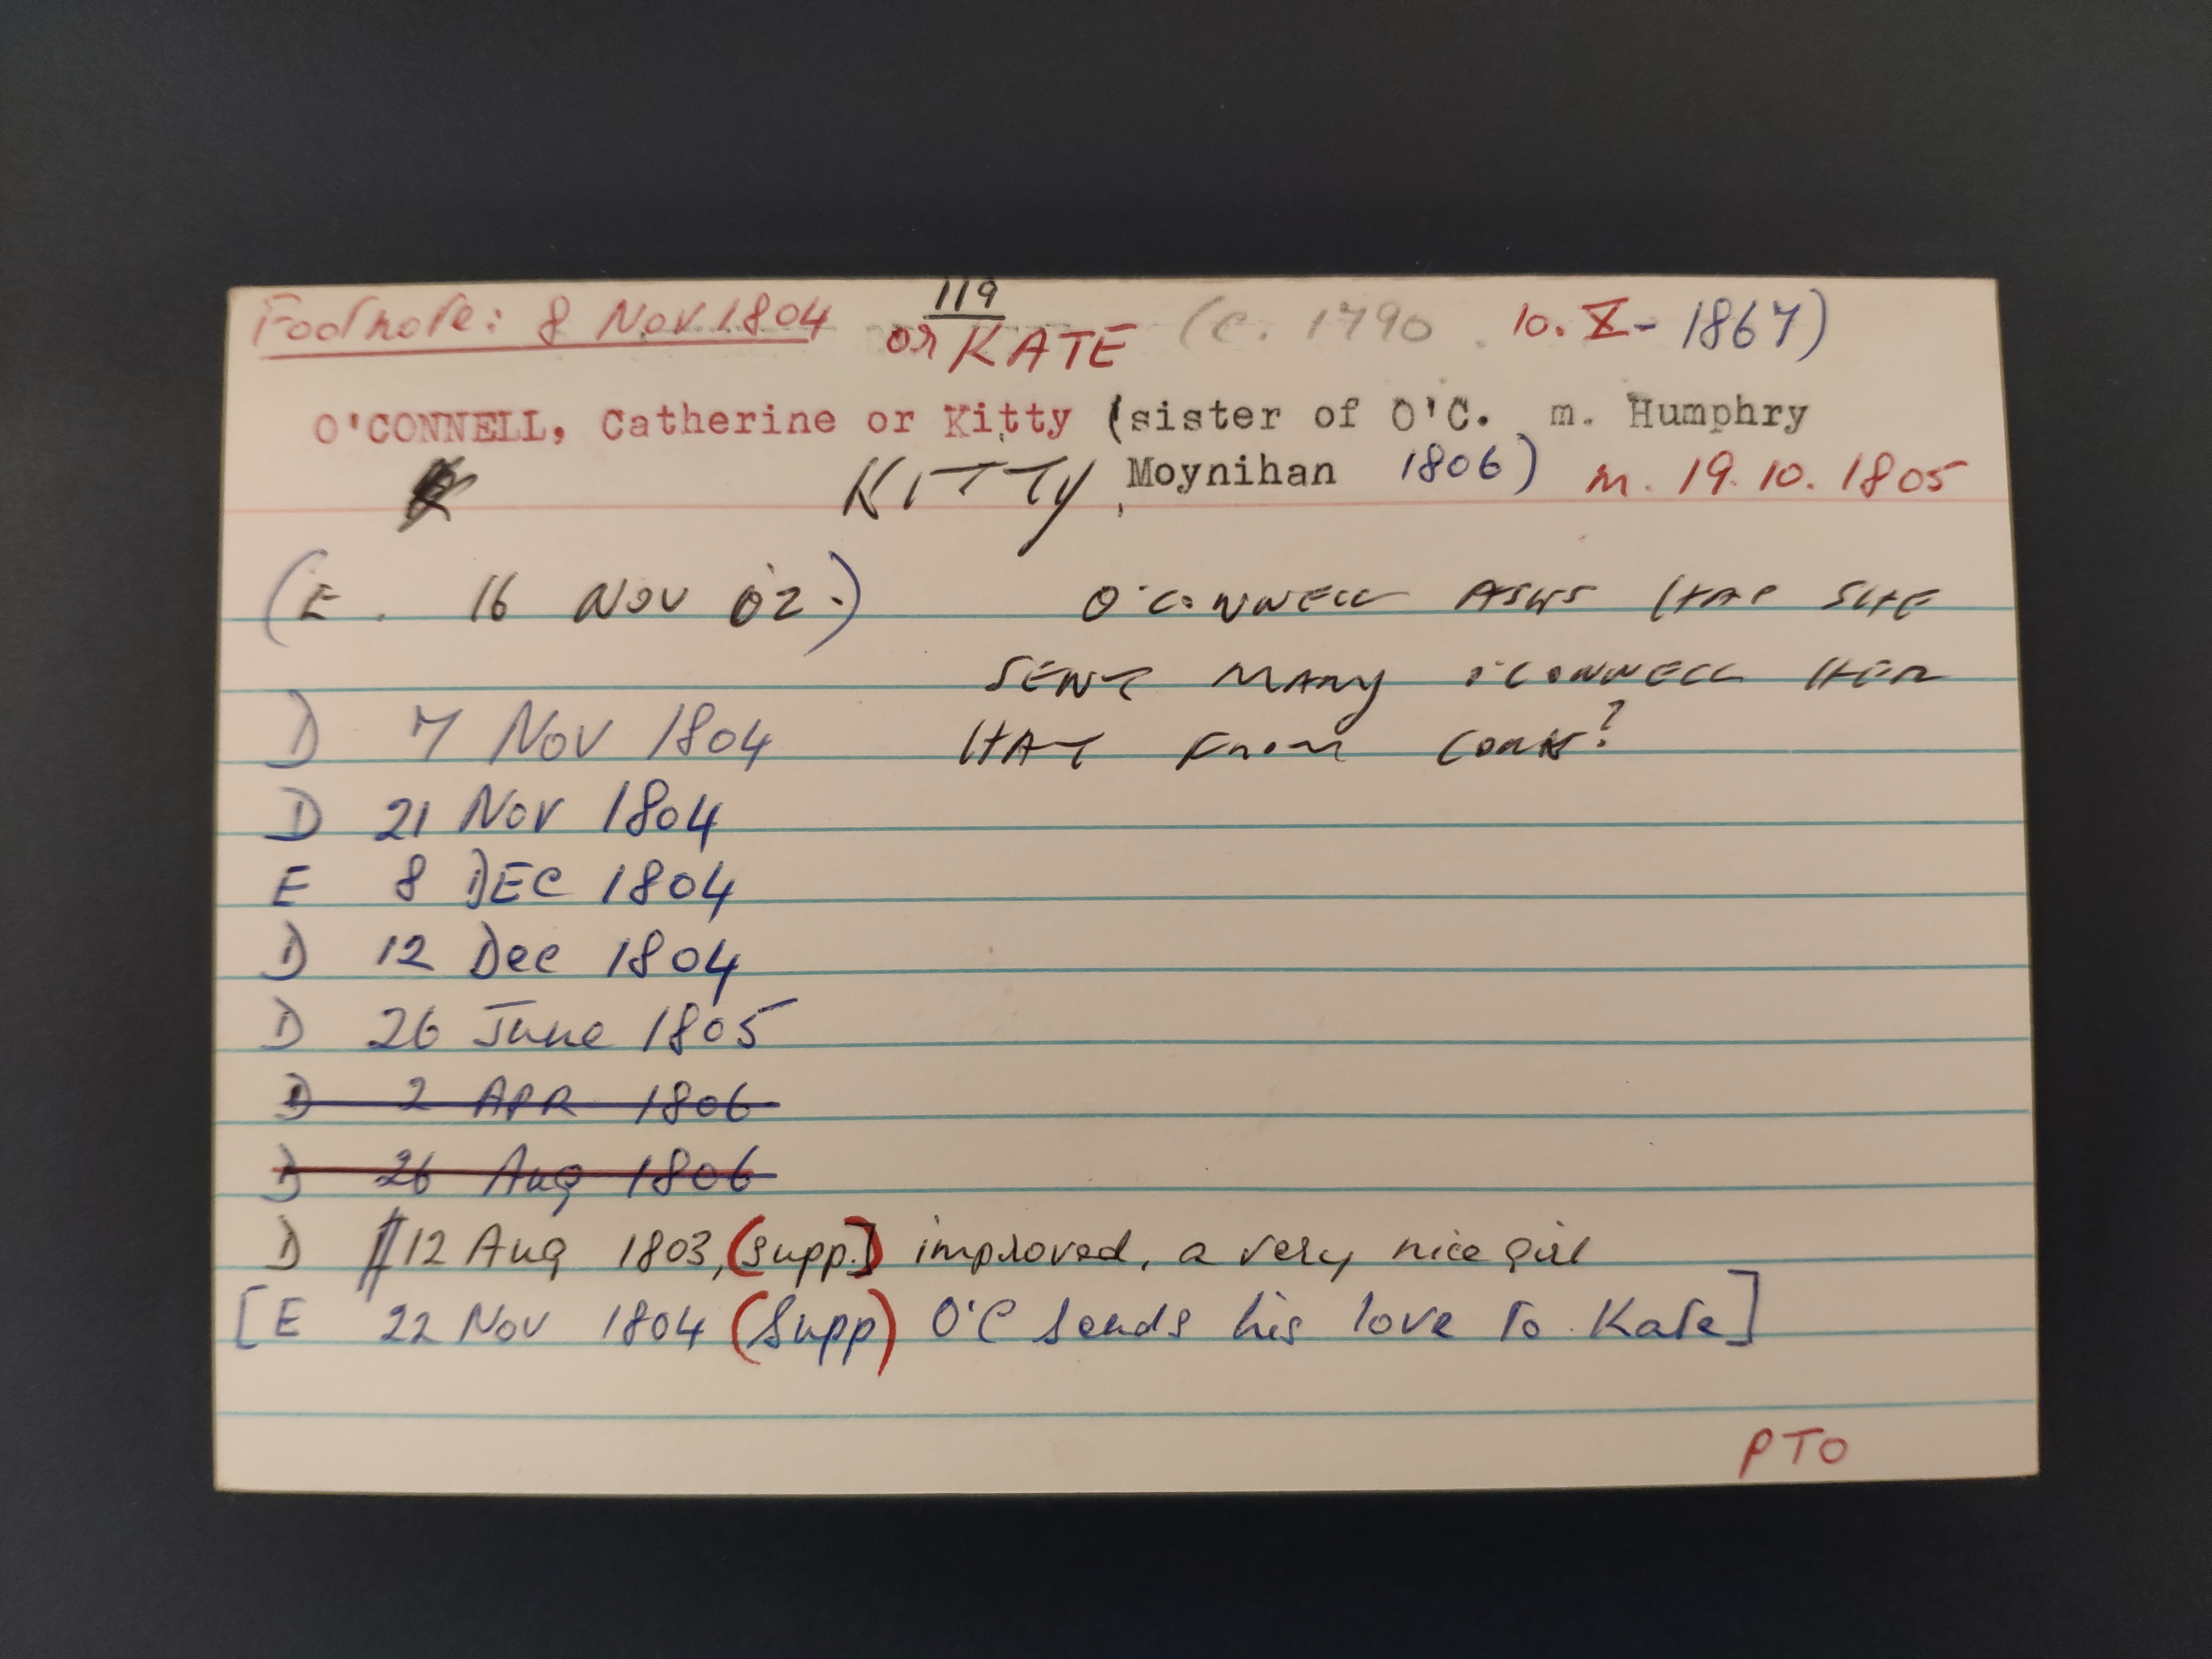 Footnote: 8 Nov 1804 119
or KATE (c. 1790. 10. X - 1867)
O'CONNELL, Catherine or Kitty (sister of O'C. m. Humphry
KITTY, Moynihan 1806) m. 19.10.1805
(E. 16 NOV 02.) O'CONNELL ASKS HAS SHE
SENT MARY O'CONNELL HER
D 7 Nov 1804 HAT FROM CORK?
D 21 Nov 1804
E 8 DEC 1804
D 12 Dec 1804
D 26 June 1805
D 2 APR 1806
D 26 Aug 1806
D 12 Aug 1803, (supp.) improved, a very nice girl
[E 22 Nov 1804 (Supp) O'C sends his love to Kate]
PTO